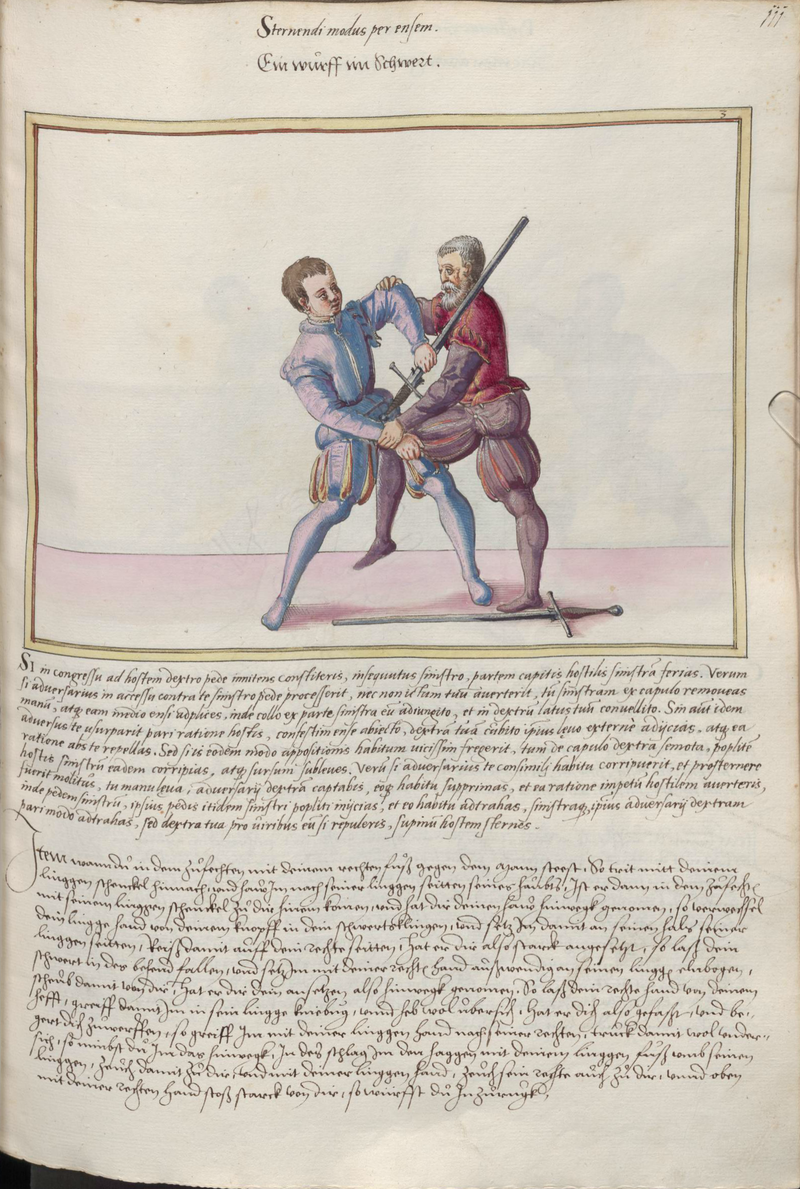 111
Sternendi modus per ensem.
Ein wurff im Schwert.
3
Si in congressu ad hostem dextro pede innitens constiteris, insequutus sinistro, partem capitis hostilis sinistrã ferias. Verum
si adversarius in accessu contra te sinistro pede processerit, nec non ictum tuũ averterit, tũ sinistram ex capulo removeas
manũ, atq; eam medio ensi adplices, inde collo ex parte sinistra eũ adiungito, et in dextrũ latus tuũ convellito. Sin aũt idem
adversus te usurparit pari ratione hostis, confestim ense abiecto, dextrã tuã cubito ipsius levo externe adijcias, atq; ea
ratione abs te repellas. Sed si is eodem modo appositionis habitum vicissim fregerit, tum de capulo dextra semota, poplitẽ
hostis sinistrũ eadem corripias, atq; sursum subleves. Verũ si adversarius te consimili habitu corripuerit, et prosternere
fuerit molitus, tu manu leva, adversarij dextrã captabis, eoq; habitu supprimas, et ea ratione impetũ hostilem averteris,
inde pedem sinistrũ, ipsius pedis itidem sinistri popliti inijcias, et eo habitu adtrahas, sinistraq; ipsius adversarij dextram
pari modo adtrahas, sed dextra tua pro viribus eũ si repuleris, supinũ hostem sternes.
Item wann du in dem zufechten mit deinem rechten fuß gegen dem Mann steest, So trit mitt deinem
linggen schenckel hinnach, und haw Im nach seiner linggen seitten seines haubts, Ist er dann in dem zufechtẽ
mit seinem linggen schenckel zu dir hinein komen, und hat dir deinen haw hinwegk genomen, so verwechsel
dein lingge hand von deinem knopff in dein schwertsklingen, und setz Im damit an seinen hals seiner
linggen seitten, Reiß damit auff dein rechte seitten, Hat er dir also starck angesetzt, so laß dein
schwert in des behend fallen, und setz Im mit deiner rechtẽ hand außwendig an seinen linggẽ elnbogen,
scheub damit von dir, Hat er dir dein ansetzen also hinwegk genomen, So laß dein rechte hand von deinem
hefft, greiff damit Im in sein lingge kniebug, unnd heb wol ubersich, Hat er dich also gefast, und be-
gert dich zuwerffen, so greiff Im mit deiner linggen hand nach seiner rechten, truck damit wol under-
sich, so nimbst du Im das hinwegk, In des schlag Im den haggen mit deinem linggen fuß umb seinen
linggen, zeuch damit zu dir, und mit deiner linggen hand, zeuch sein rechte auch zu dir, unnd oben
mit deiner rechten hand stoß starck von dir, so wurffst du In zurugk.